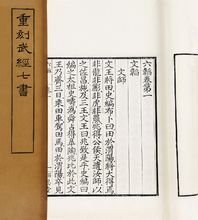 重刻武經七書
六韜卷第一
文韜
文師
文王將田史編布卜曰田於渭陽將大得焉
非龍非彲非虎非羆兆得公侯天遺汝師以
之佐昌施及三王文王曰兆致是乎史編曰
編之太祖史疇為占得皋陶兆比於此文
王乃齋三日乘田車駕田馬田於渭陽卒見